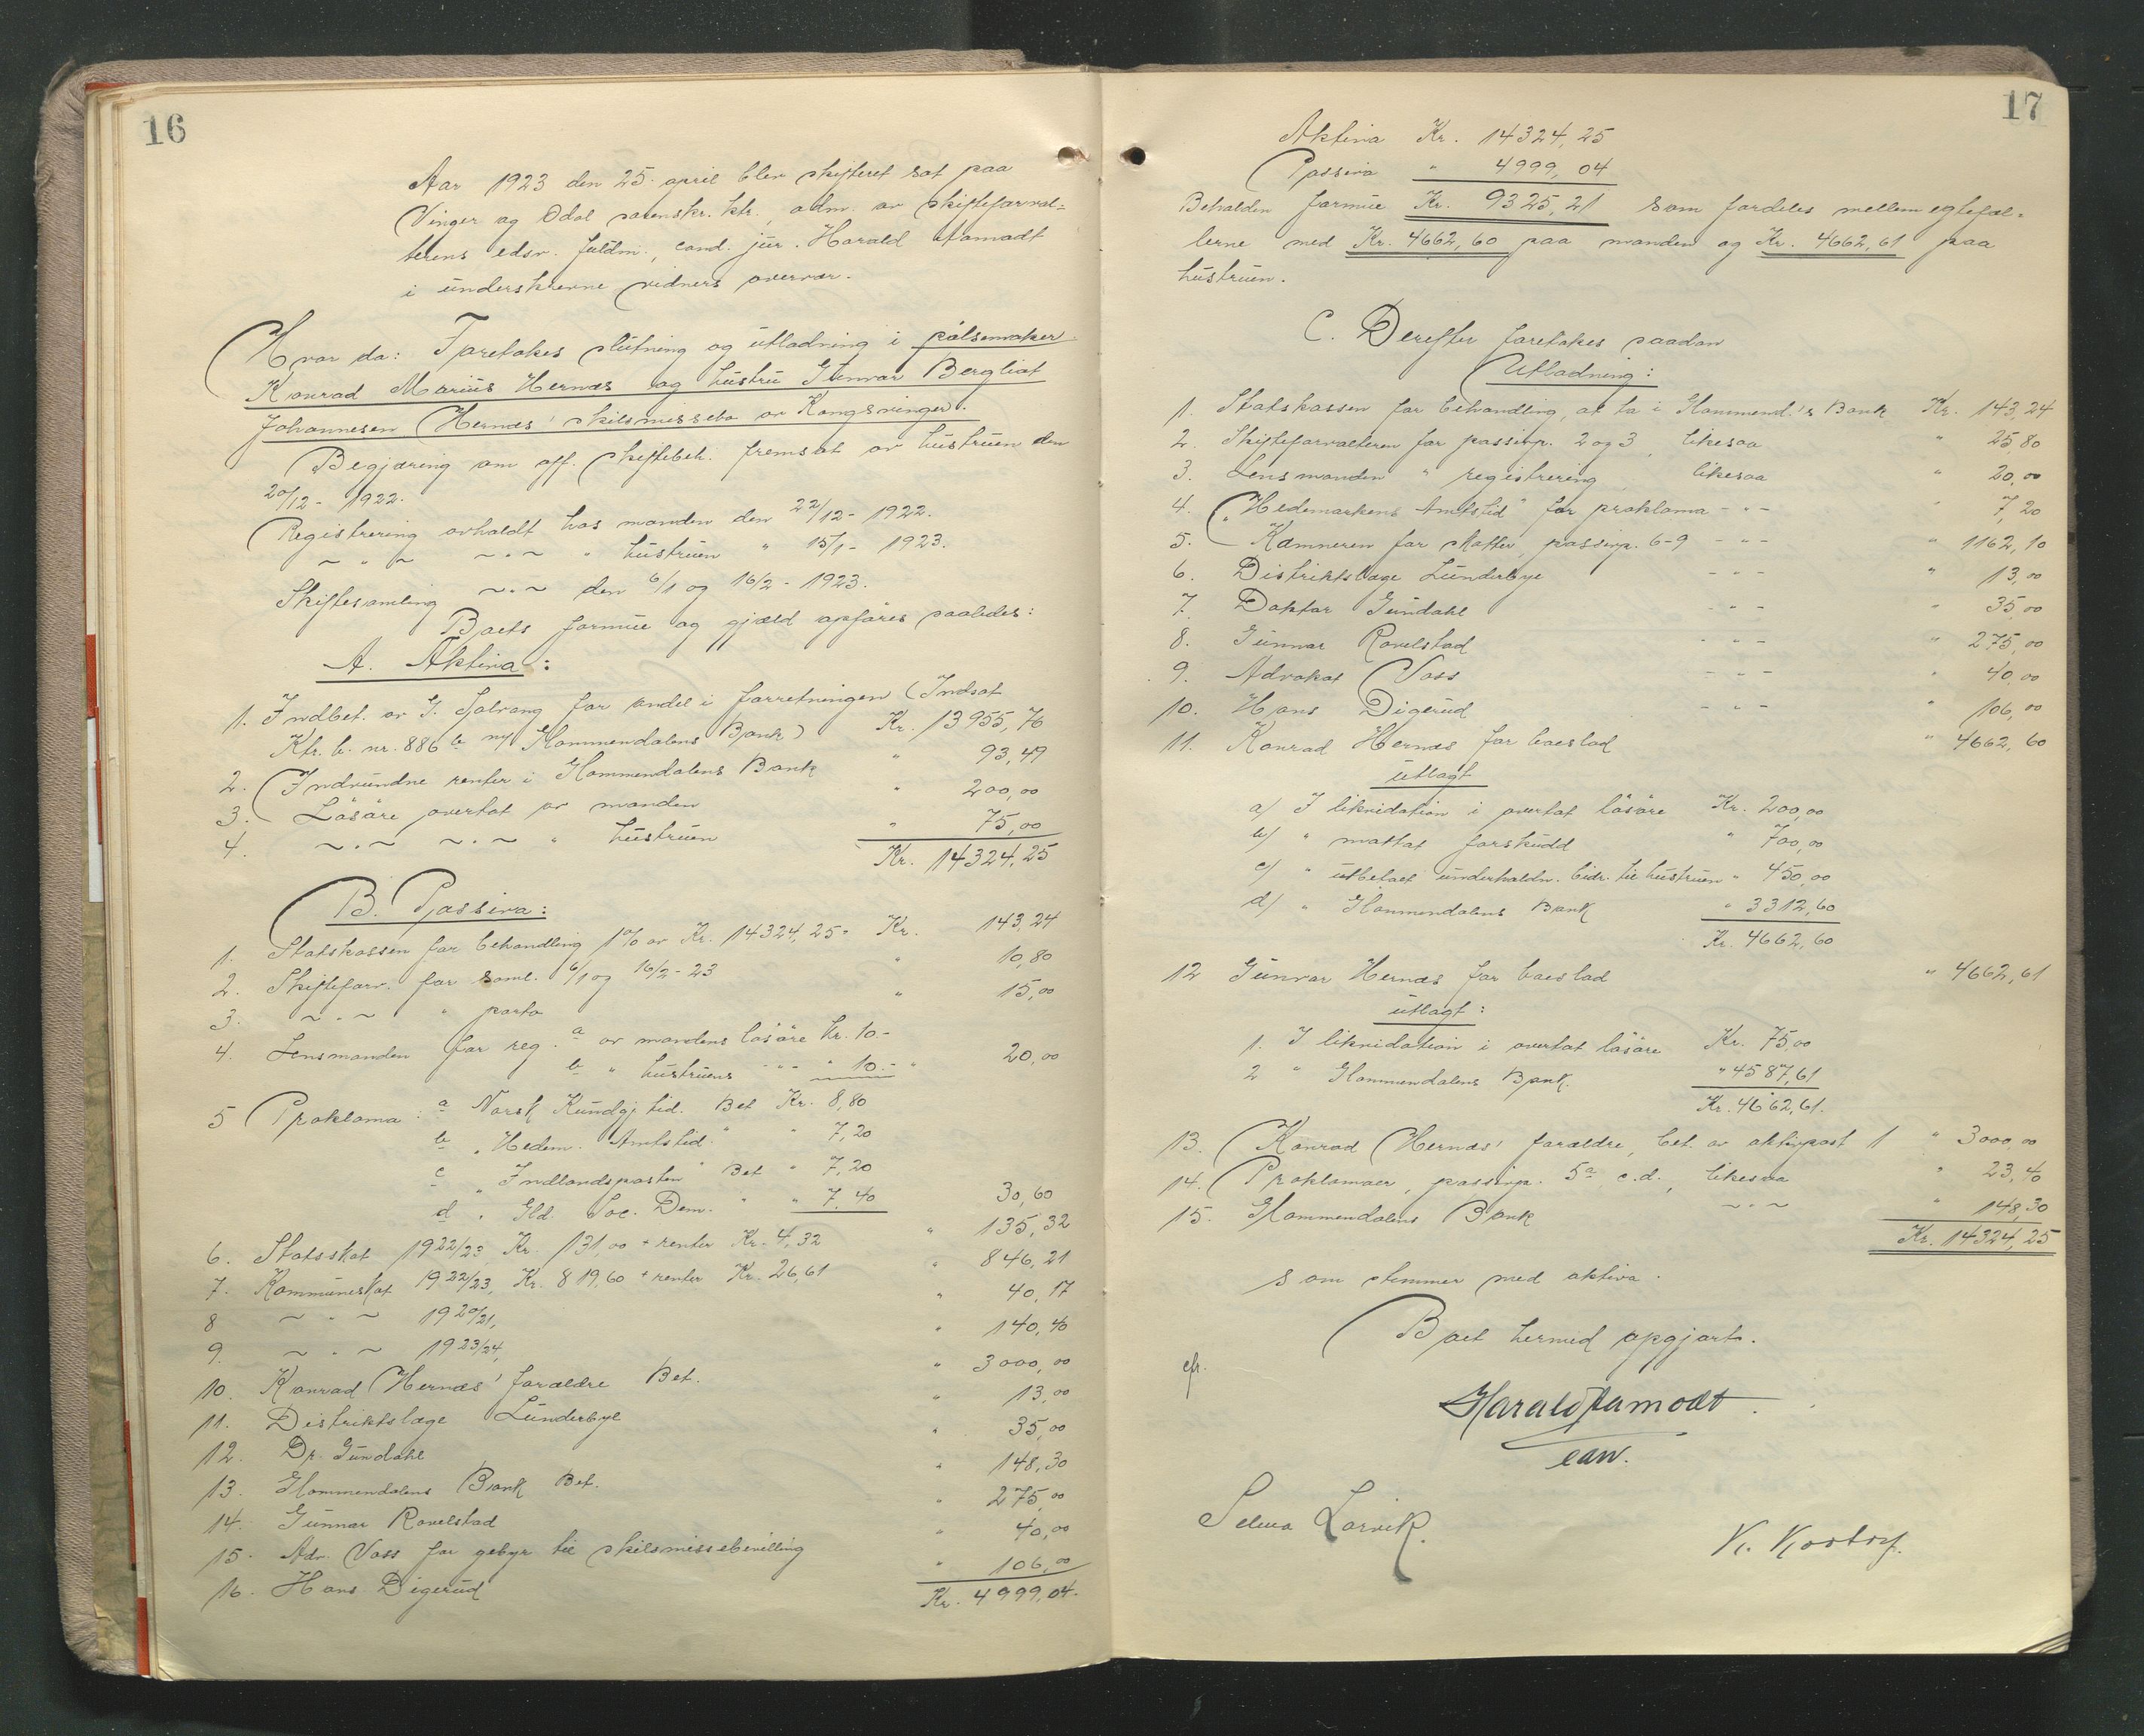 16
Aar 1923 den 25. april blev skifteret sat paa
Vinger og Odal sorenskr. ktr., adm. av skifteforval=
terens edsv. fuldm., cand. jur. Harald Aamodt
i underskrevne vidners overvær.
Hvor da: Foretokes slutning og utlodning i pølsemaker
Konrad Marius Hernæs og hustru Gunvor Bergliot
Johannesen Hernæs' skilsmissebo av Kongsvinger.
Begjæring om off. skiftebeh. fremsat av hustruen den
20/12 - 1922.
Registrering avholdt hos manden den 22/12 - 1922.
~ " ~ ~ " ~ " hustruen " 15/1 - 1923.
Skiftesamling ~ " ~ den 6/1 og 16/2 - 1923.
Boets formue og gjæld opføres saaledes:
A. Aktiva:
1. Indbet. av G. Solvang for andel i forretningen (Indsat
Ktr. b. nr. 886 b m/ Glommendalens Bank) Kr. 13955,76
2. Indvundne renter i Glommendalens Bank " 93,49
3. Løsøre overtat av manden " 200,00
4. ~ " ~ ~ " ~ " hustruen " 75,00
Kr. 14324,25
B. Passiva:
1. Statskassen for behandling 1% av Kr. 14324,25 = Kr. 143,24
2. Skifteforv. for saml. 6/1 og 16/2 - 23 " 10,80
3. ~ " ~ " porto " 15,00
4. Lensmanden for reg. a av mandens løsøre kr. 10 -
b " hustruens - " - " 10 - " 20,00
5 Proklama: a Norsk Kundgj tid. Bet Kr. 8,80
b " Hedem. Amtstid. " " 7,20
c " Indlandsposten " Bet " 7,20
d " Gld. Soc. Dem. " " 7,40 30,60
6. Statsskat 1922/23, Kr. 131,00 + renter Kr. 4,32 " 135,32
7. Kommuneskat 1922/23, Kr. 819,60 + renter Kr. 26,61 " 846,21
8 ~ " ~ 1920/21, " 40,17
9. ~ " ~ 1923/24, " 140,40
10. Konrad Hernæs' forældre Bet. " 3000,00
11. Distriktslæge Lünderbye " 13,00
12. Dr. Gundahl " 35,00
13. Glommendalens Bank Bet. " 148,30
14. Gunnar Rovelstad " 275,00
15. Adv. Voss for gebyr til skilsmissebevilling " 40,00
16. Hans Digerud " 106,00
Kr. 4999,04.
17
Aktiva Kr. 14324,25
Passiva " 4999,04
Beholden formue Kr. 9325,21 som fordeles mellem egtefæl=
lerne med Kr. 4662,60 paa manden og Kr. 4662,61 paa
hustruen.
C. Derefter foretokes saadan
Utlodning:
1. Statskassen for behandling, at ta i Glommend.'s Bank Kr. 143,24
2. Skifteforvalteren for passivp. 2 og 3, likesaa " 25,80
3. Lensmanden " registrering, likesaa " 20,00
4. "Hedemarkens Amtstid" for proklama - " - " 7,20
5. Kæmneren for skatter, passivp. 6-9 - " - " 1162,10
6. Distriktslæge Lünderbye - " - " 13,00
7. Doktor Gundahl - " - " 35,00
8. Gunnar Rovelstad - " - " 275,00
9. Advokat Voss - " - " 40,00
10. Hans Digerud - " - " 106,00
11. Konrad Hernæs for boeslod " 4662,60
utlagt
a/ I likvidation i overtat løsøre Kr. 200,00
b/ " mottat forskudd " 700,00
c/ " utbetalt underholdn. bidr. til hustruen " 450,00
d/ " Glommendalens Bank " 3312,60
Kr. 4662,60
12 Gunvor Hernæs for boeslod " 4662,61
utlagt:
1. I likvidation i overtat løsøre Kr. 75,00
2 " Glommendalens Bank. " 4587,61
Kr. 4662,61.
13. Konrad Hernæs' forældre, bet. av aktivpost 1 " 3000,00
14. Proklamaer, passivp. 5a c.d., likesaa " 23,40
15. Glommendalens Bank ~ " ~ " 148,30
Kr. 14324,25
som stemmer med aktiva.
Boet hermed opgjort.
cfr.
Harald Aamodt.
edsv.
Selma Lorvik.